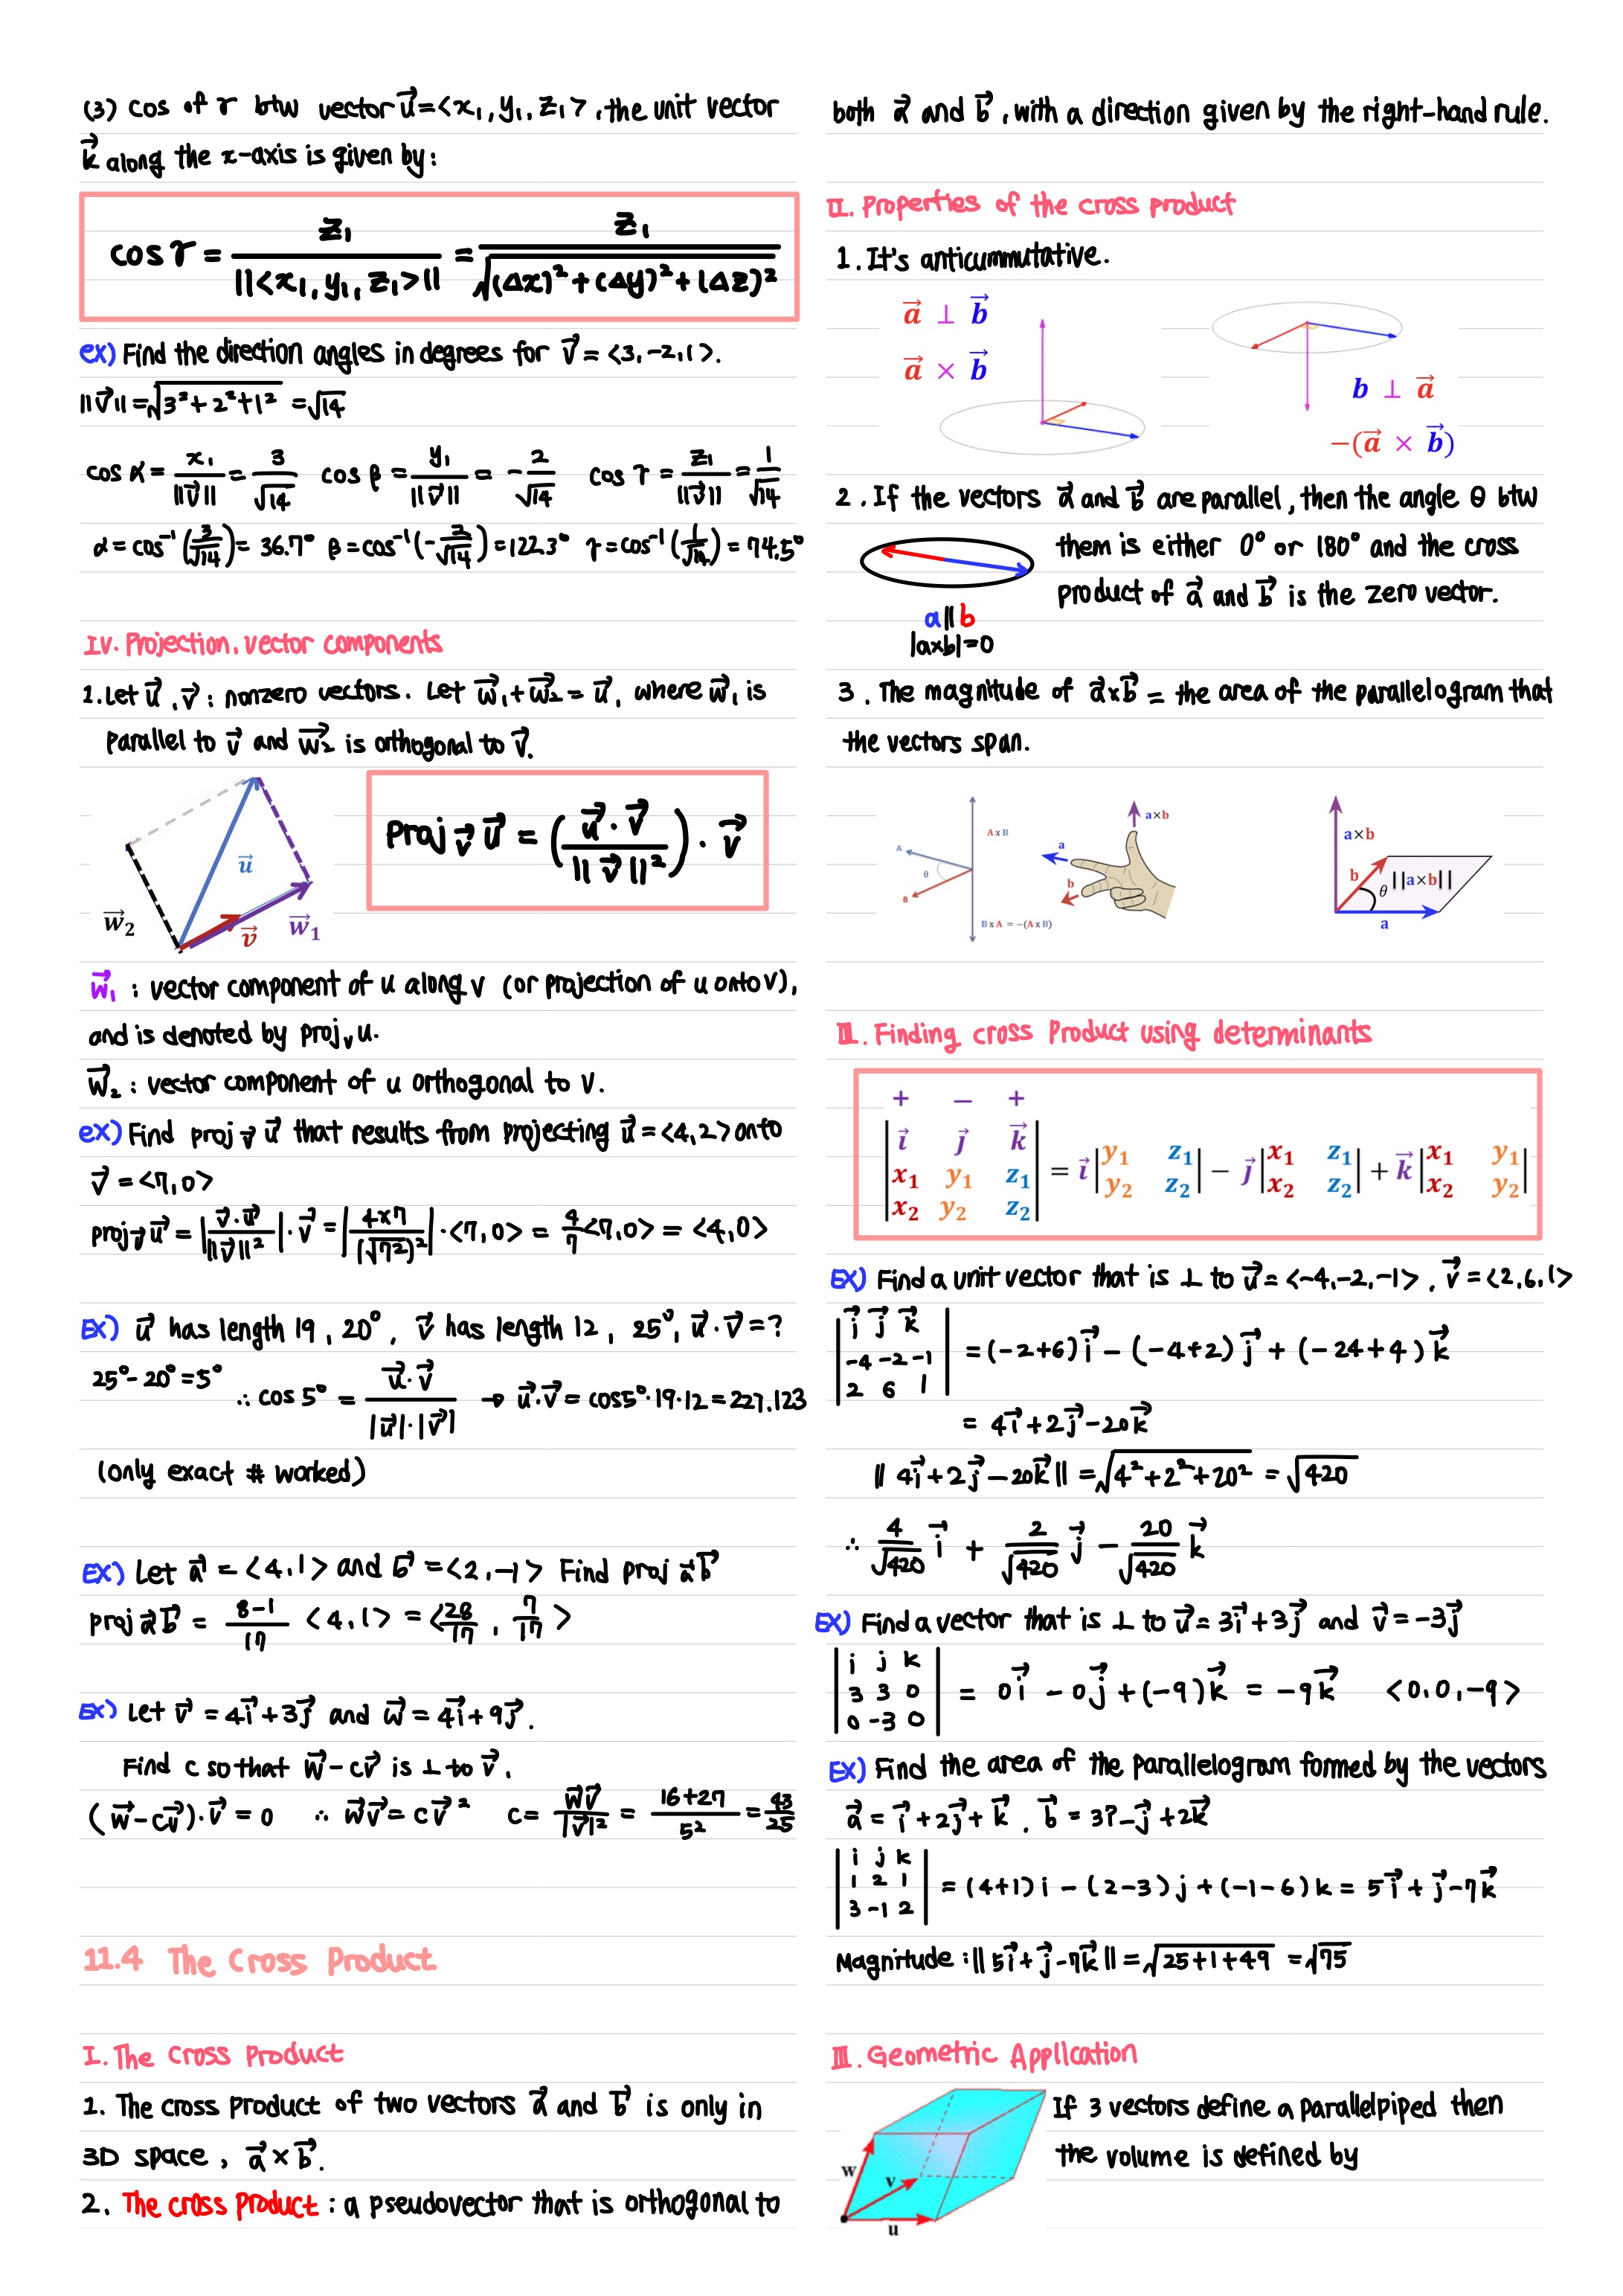 (3) cos of γ btw vector u⃗=<x₁, y₁, z₁>, the unit vector
k⃗ along the x-axis is given by:
cos γ = z₁ / ||<x₁, y₁, z₁>|| = z₁ / √((Δx)² + (Δy)² + (Δz)²)
ex) Find the direction angles in degrees for v⃗ = <3, -2, 1>.
||v⃗|| = √(3² + 2² + 1²) = √14
cos α = x₁/||v⃗|| = 3/√14 cos β = y₁/||v⃗|| = - 2/√14 cos γ = z₁/||v⃗|| = 1/√14
α = cos⁻¹(3/√14) = 36.7° β = cos⁻¹(-2/√14) = 122.3° γ = cos⁻¹(1/√14) = 74.5°
IV. Projection, vector components
1. Let u⃗, v⃗ : nonzero vectors. Let w⃗₁ + w⃗₂ = u⃗, where w⃗₁ is
parallel to v⃗ and w⃗₂ is orthogonal to v⃗.
u⃗
w⃗₂
v⃗
w⃗₁
Proj v⃗ u⃗ = (u⃗ · v⃗ / ||v⃗||²) · v⃗
w⃗₁ : vector component of u along v (or projection of u onto v),
and is denoted by proj v u.
w⃗₂ : vector component of u orthogonal to v.
ex) Find proj v⃗ u⃗ that results from projecting u⃗ = <4, 2> onto
v⃗ = <7, 0>
proj v⃗ u⃗ = |v⃗ · u⃗ / ||v⃗||²| · v⃗ = |4×7 / (√7²)²| · <7, 0> = 4/7 <7, 0> = <4, 0>
EX) u⃗ has length 19, 20°, v⃗ has length 12, 25°, u⃗ · v⃗ = ?
25° - 20° = 5° ∴ cos 5° = u⃗ · v⃗ / |u⃗| · |v⃗| → u⃗ · v⃗ = cos5° · 19 · 12 = 227.123
(Only exact # worked)
EX) Let a⃗ = <4, 1> and b⃗ = <2, -1> Find proj a⃗ b⃗
proj a⃗ b⃗ = 8-1 / 17 <4, 1> = <28/17, 7/17>
EX) Let v⃗ = 4i⃗ + 3j⃗ and w⃗ = 4i⃗ + 9j⃗.
Find c so that w⃗ - cv⃗ is ⊥ to v⃗.
(w⃗ - cv⃗) · v⃗ = 0 ∴ w⃗v⃗ = cv⃗² c = w⃗v⃗ / |v⃗|² = 16+27 / 5² = 43/25
11.4 The Cross Product
I. The Cross Product
1. The cross product of two vectors a⃗ and b⃗ is only in
3D space, a⃗ × b⃗.
2. The cross product : a pseudovector that is orthogonal to
both a⃗ and b⃗, with a direction given by the right-hand rule.
II. Properties of the cross product
1. It's anticummutative.
a⃗ ⊥ b⃗
a⃗ × b⃗
b ⊥ a⃗
-(a⃗ × b⃗)
2. If the vectors a⃗ and b⃗ are parallel, then the angle θ btw
them is either 0° or 180° and the cross
product of a⃗ and b⃗ is the zero vector.
a∥b
|axb|=0
3. The magnitude of a⃗×b⃗ = the area of the parallelogram that
the vectors span.
A x B
A
θ
B
B x A = -(A x B)
a×b
a
b
a×b
b
θ
||a×b||
a
III. Finding cross Product using determinants
+ − +
| i⃗ j⃗ k⃗ |
| x₁ y₁ z₁ | = i⃗ |y₁ z₁| − j⃗ |x₁ z₁| + k⃗ |x₁ y₁|
| x₂ y₂ z₂ | |y₂ z₂| |x₂ z₂| |x₂ y₂|
EX) Find a unit vector that is ⊥ to u⃗ = <-4, -2, -1>, v⃗ = <2, 6, 1>
| j⃗ j⃗ k⃗ |
| -4 -2 -1 | = (-2+6) i⃗ - (-4+2) j⃗ + (-24+4) k⃗
| 2 6 1 |
= 4i⃗ + 2j⃗ - 20k⃗
|| 4i⃗ + 2j⃗ - 20k⃗ || = √(4² + 2² + 20²) = √420
∴ 4/√420 i⃗ + 2/√420 j⃗ - 20/√420 k⃗
EX) Find a vector that is ⊥ to u⃗ = 3i⃗ + 3j⃗ and v⃗ = -3j⃗
| i j k |
| 3 3 0 | = 0i⃗ - 0j⃗ + (-9)k⃗ = -9k⃗ <0, 0, -9>
| 0 -3 0 |
EX) Find the area of the parallelogram formed by the vectors
a⃗ = i⃗ + 2j⃗ + k⃗, b⃗ = 3i⃗ - j⃗ + 2k⃗
| i j k |
| 1 2 1 | = (4+1) i - (2-3) j + (-1-6) k = 5i⃗ + j⃗ - 7k⃗
| 3 -1 2 |
Magnitude : || 5i⃗ + j⃗ - 7k⃗ || = √(25+1+49) = √75
III. Geometric Application
w
v
u
If 3 vectors define a parallelpiped then
the volume is defined by